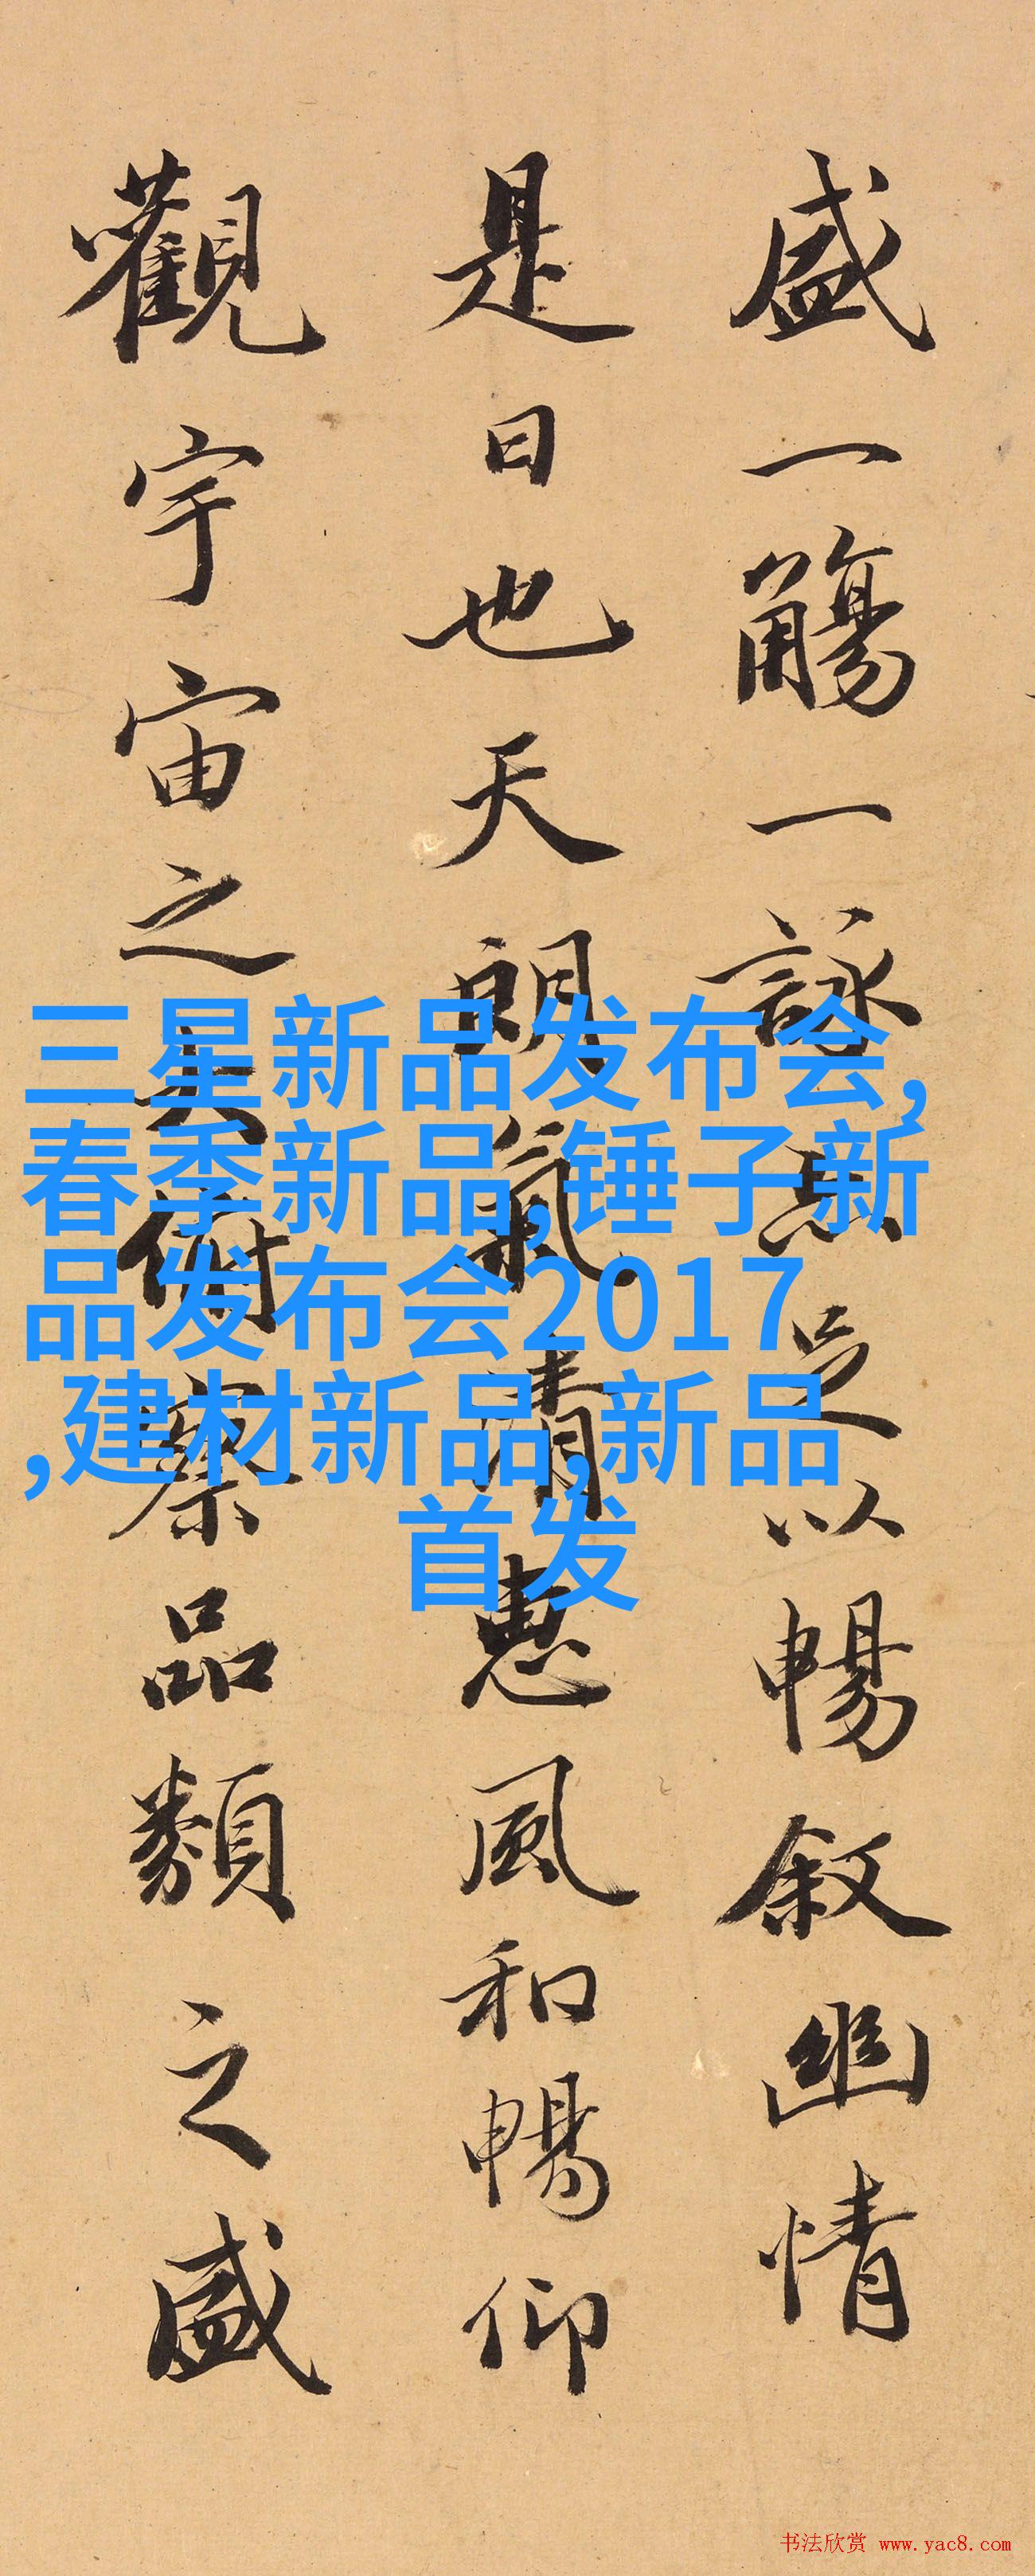 盛一觴一詠亦足以暢叙幽情
是日也天朗氣清惠風和暢仰
觀宇宙之大俯察品類之盛
三星新品发布会,
春季新品,锤子新
品发布会2017
,建材新品,新品
首发
书法欣赏 www.yac8.com